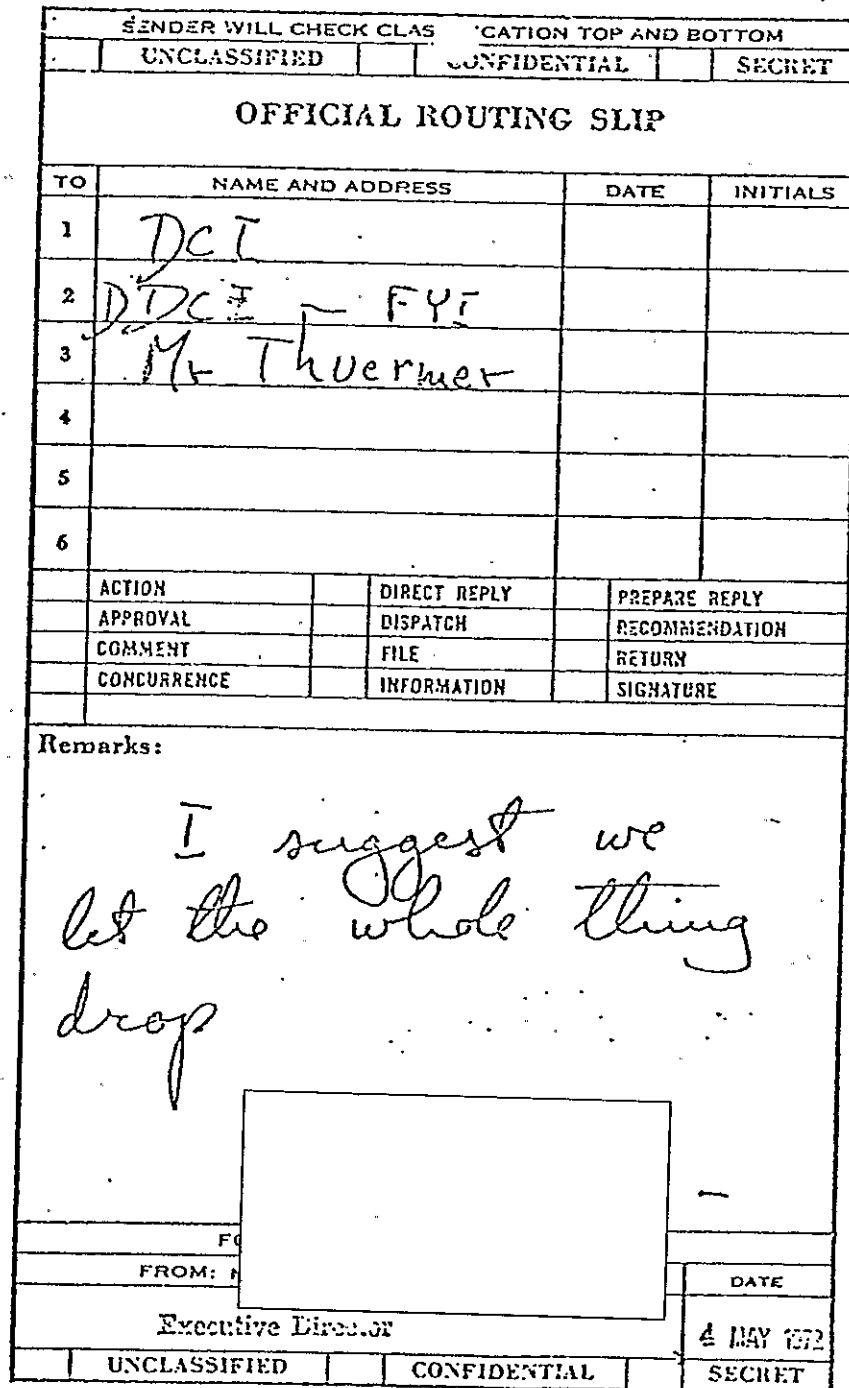 SENDER WILL CHECK CLAS CATION TOP AND BOTTOM
UNCLASSIFIED CONFIDENTIAL SECRET
OFFICIAL ROUTING SLIP
TO NAME AND ADDRESS DATE INITIALS
1 DCI
2 DDCI — FYI
3 Mr Thuermer
4
5
6
ACTION DIRECT REPLY PREPARE REPLY
APPROVAL DISPATCH RECOMMENDATION
COMMENT FILE RETURN
CONCURRENCE INFORMATION SIGNATURE
Remarks:
I suggest we
let the whole thing
drop
FO
FROM: DATE
Executive Director 4 MAY 1972
UNCLASSIFIED CONFIDENTIAL SECRET